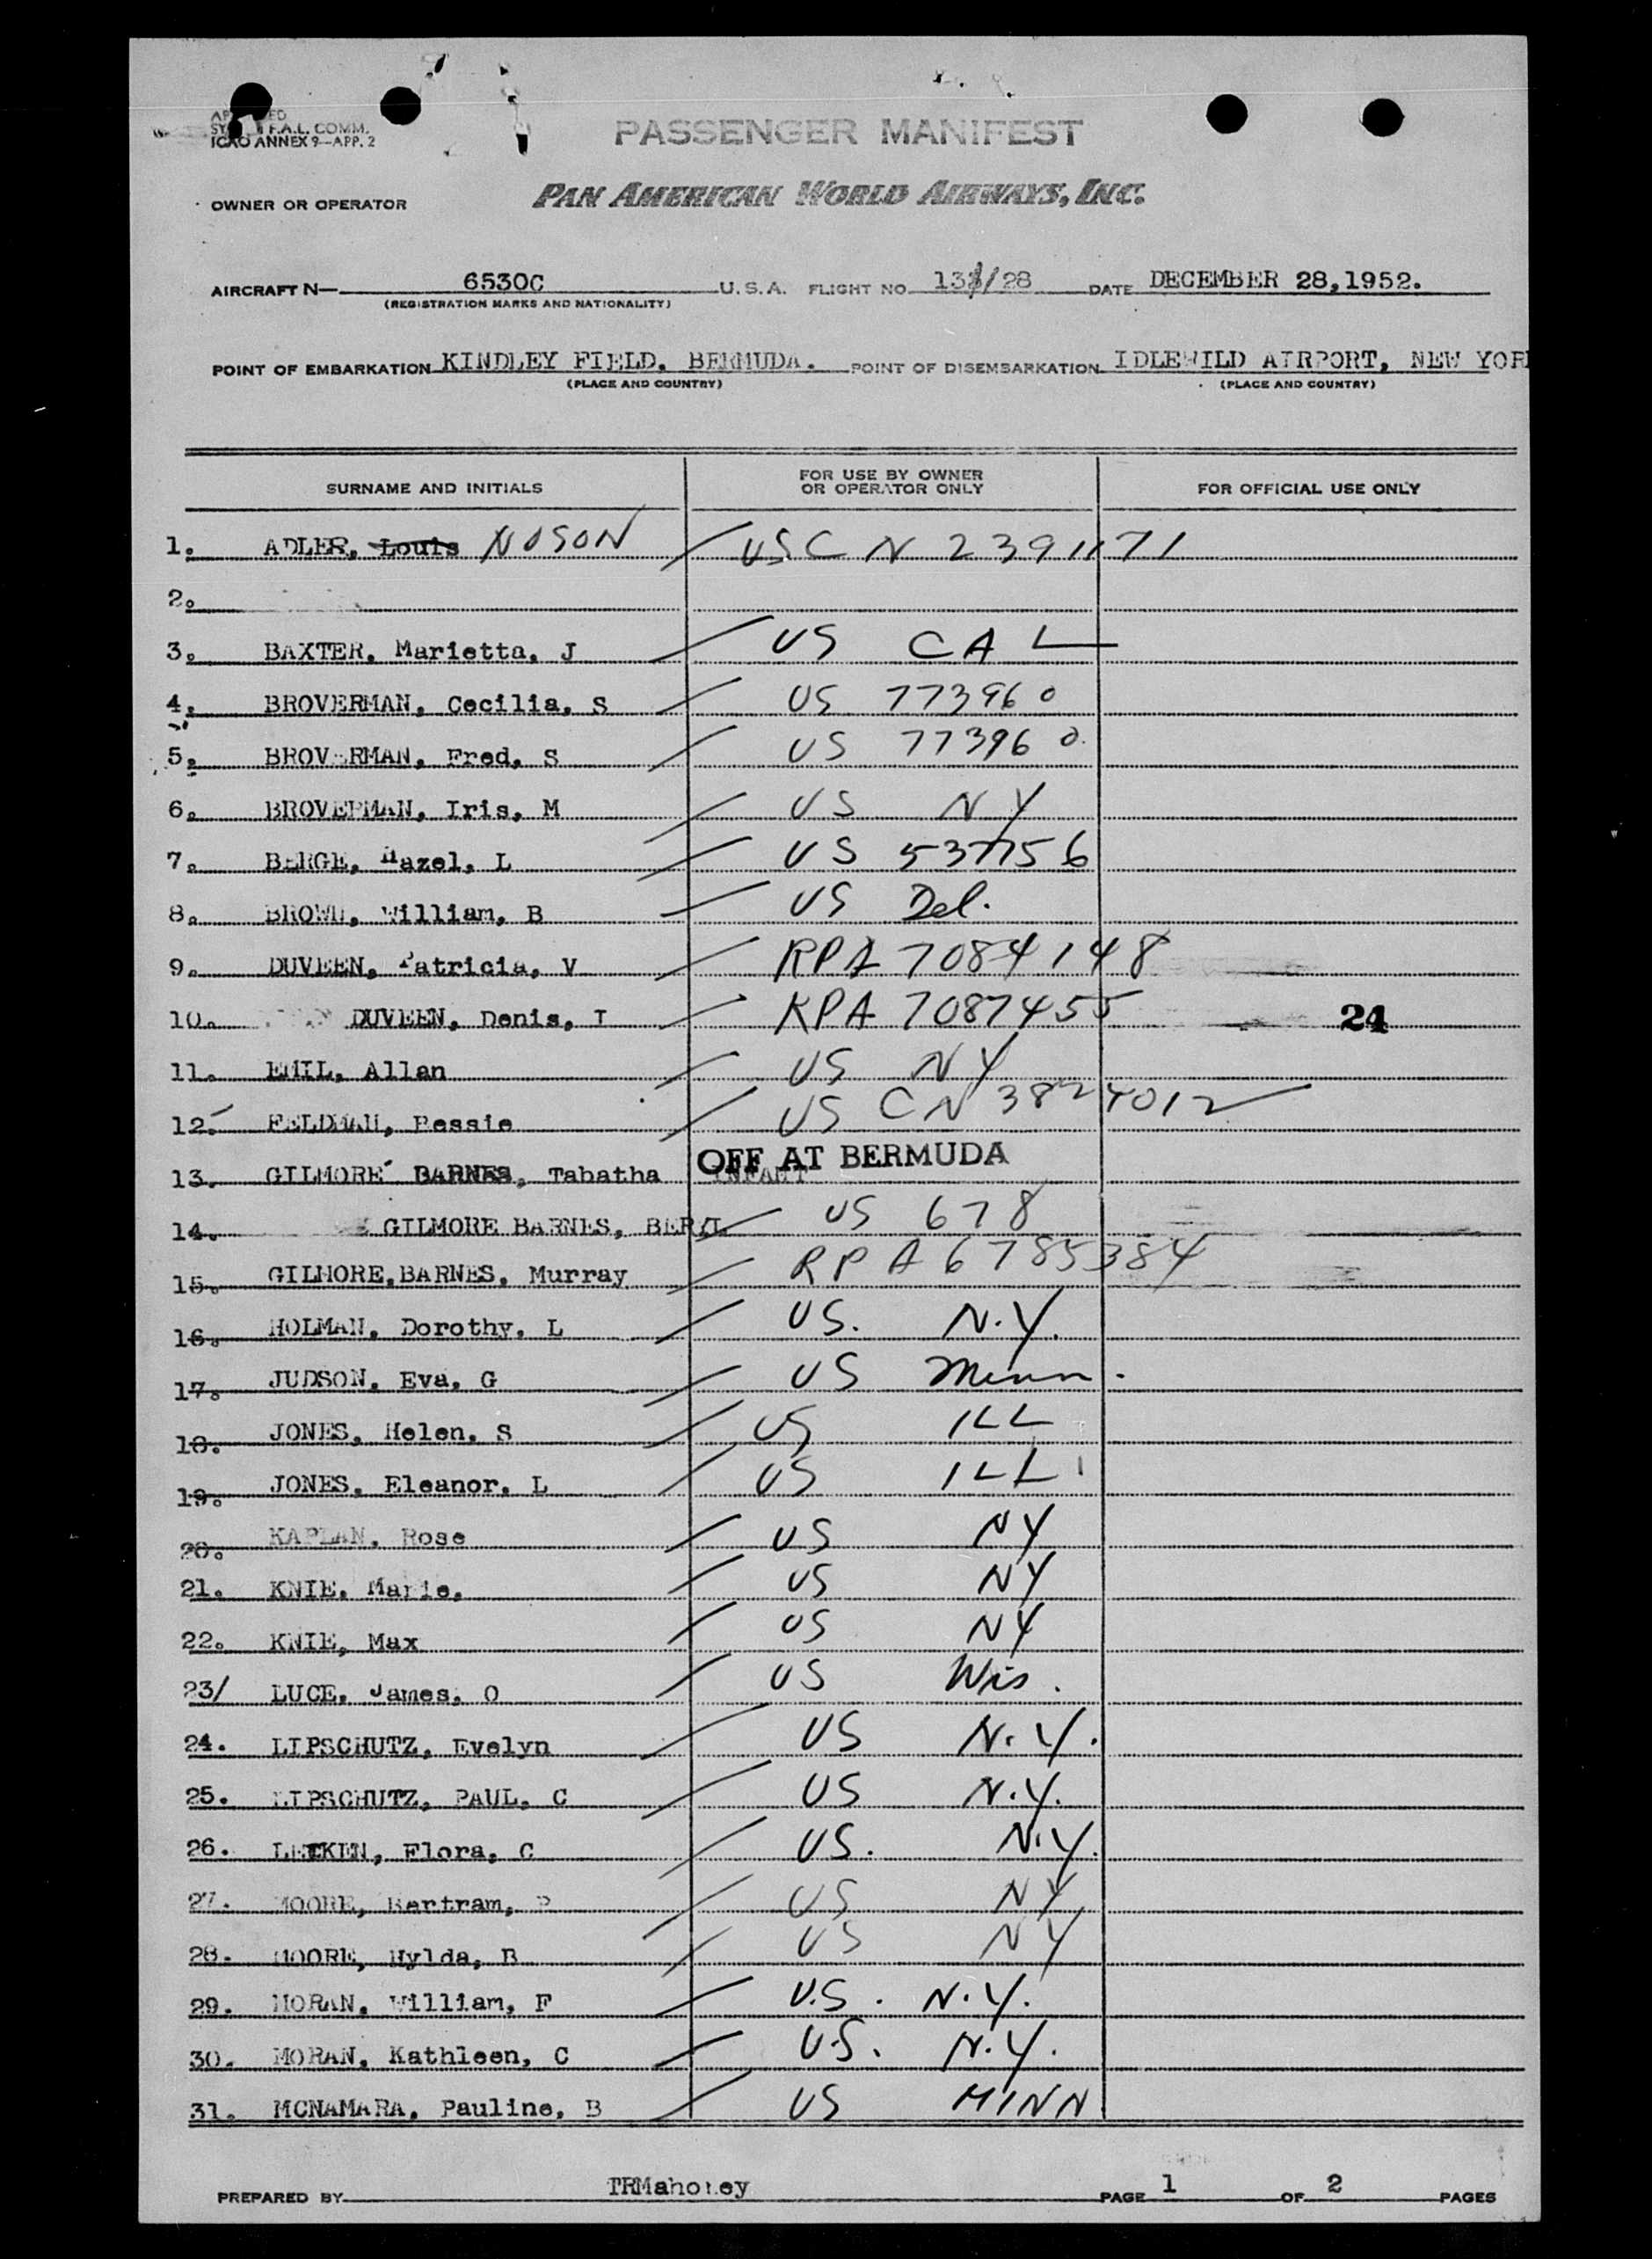 F.A.L. COMM.
ICAO ANNEX 9-APP. 2
PASSENGER MANIFEST
OWNER OR OPERATOR PAN AMERICAN WORLD AIRWAYS, INC.
AIRCRAFT N— 6530C U.S.A. FLIGHT NO. /28 DATE DECEMBER 28, 1952.
(REGISTRATION MARKS AND NATIONALITY)
POINT OF EMBARKATION KINDLEY FIELD, BERMUDA. POINT OF DISEMBARKATION IDLEWILD AIRPORT, NEW YOR
(PLACE AND COUNTRY) (PLACE AND COUNTRY)
SURNAME AND INITIALS FOR USE BY OWNER OR OPERATOR ONLY FOR OFFICIAL USE ONLY
1. ADLER, Louis NUSON USC N 2391171
2.
3. BAXTER, Marietta, J US CAL
4. BROVERMAN, Cecilia, S US 773960
5. BROVERMAN, Fred, S US 773960
6. BROVERMAN, Iris, M US NY
7. BERGE, Hazel, L US 537756
8. BROWN, William, B US Del.
9. DUVEEN, Patricia, V RPA 7084148
10. DUVEEN, Denis, I RPA 7087455 24
11. EMIL, Allan US NY
12. FELDMAN, Bessie US CN 3824012
13. GILMORE BARNES, Tabatha INFANT OFF AT BERMUDA
14. GILMORE BARNES, BERYL US 678
15. GILMORE, BARNES, Murray RPA 6785384
16. HOLMAN, Dorothy, L US. N.Y.
17. JUDSON, Eva, G US Minn.
18. JONES, Helen, S US ILL
19. JONES, Eleanor, L US ILL
20. KAPLAN, Rose US NY
21. KNIE, Marie, US NY
22. KNIE, Max US NY
23/ LUCE, James, O US Wis.
24. LIPSCHUTZ, Evelyn US N.Y.
25. LIPSCHUTZ, PAUL, C US N.Y.
26. Flora, C US. N.Y.
27. MOORE, Bertram, P US NY
28. MOORE, Hylda, B US NY
29. MORAN, William, F U.S. N.Y.
30. MORAN, Kathleen, C U.S. N.Y.
31. MCNAMARA, Pauline, B US MINN
PREPARED BY TRMahoney PAGE 1 OF 2 PAGES